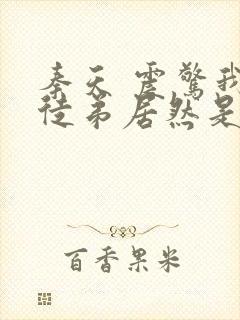 秦天 震驚我
徒弟居然是
百香果米